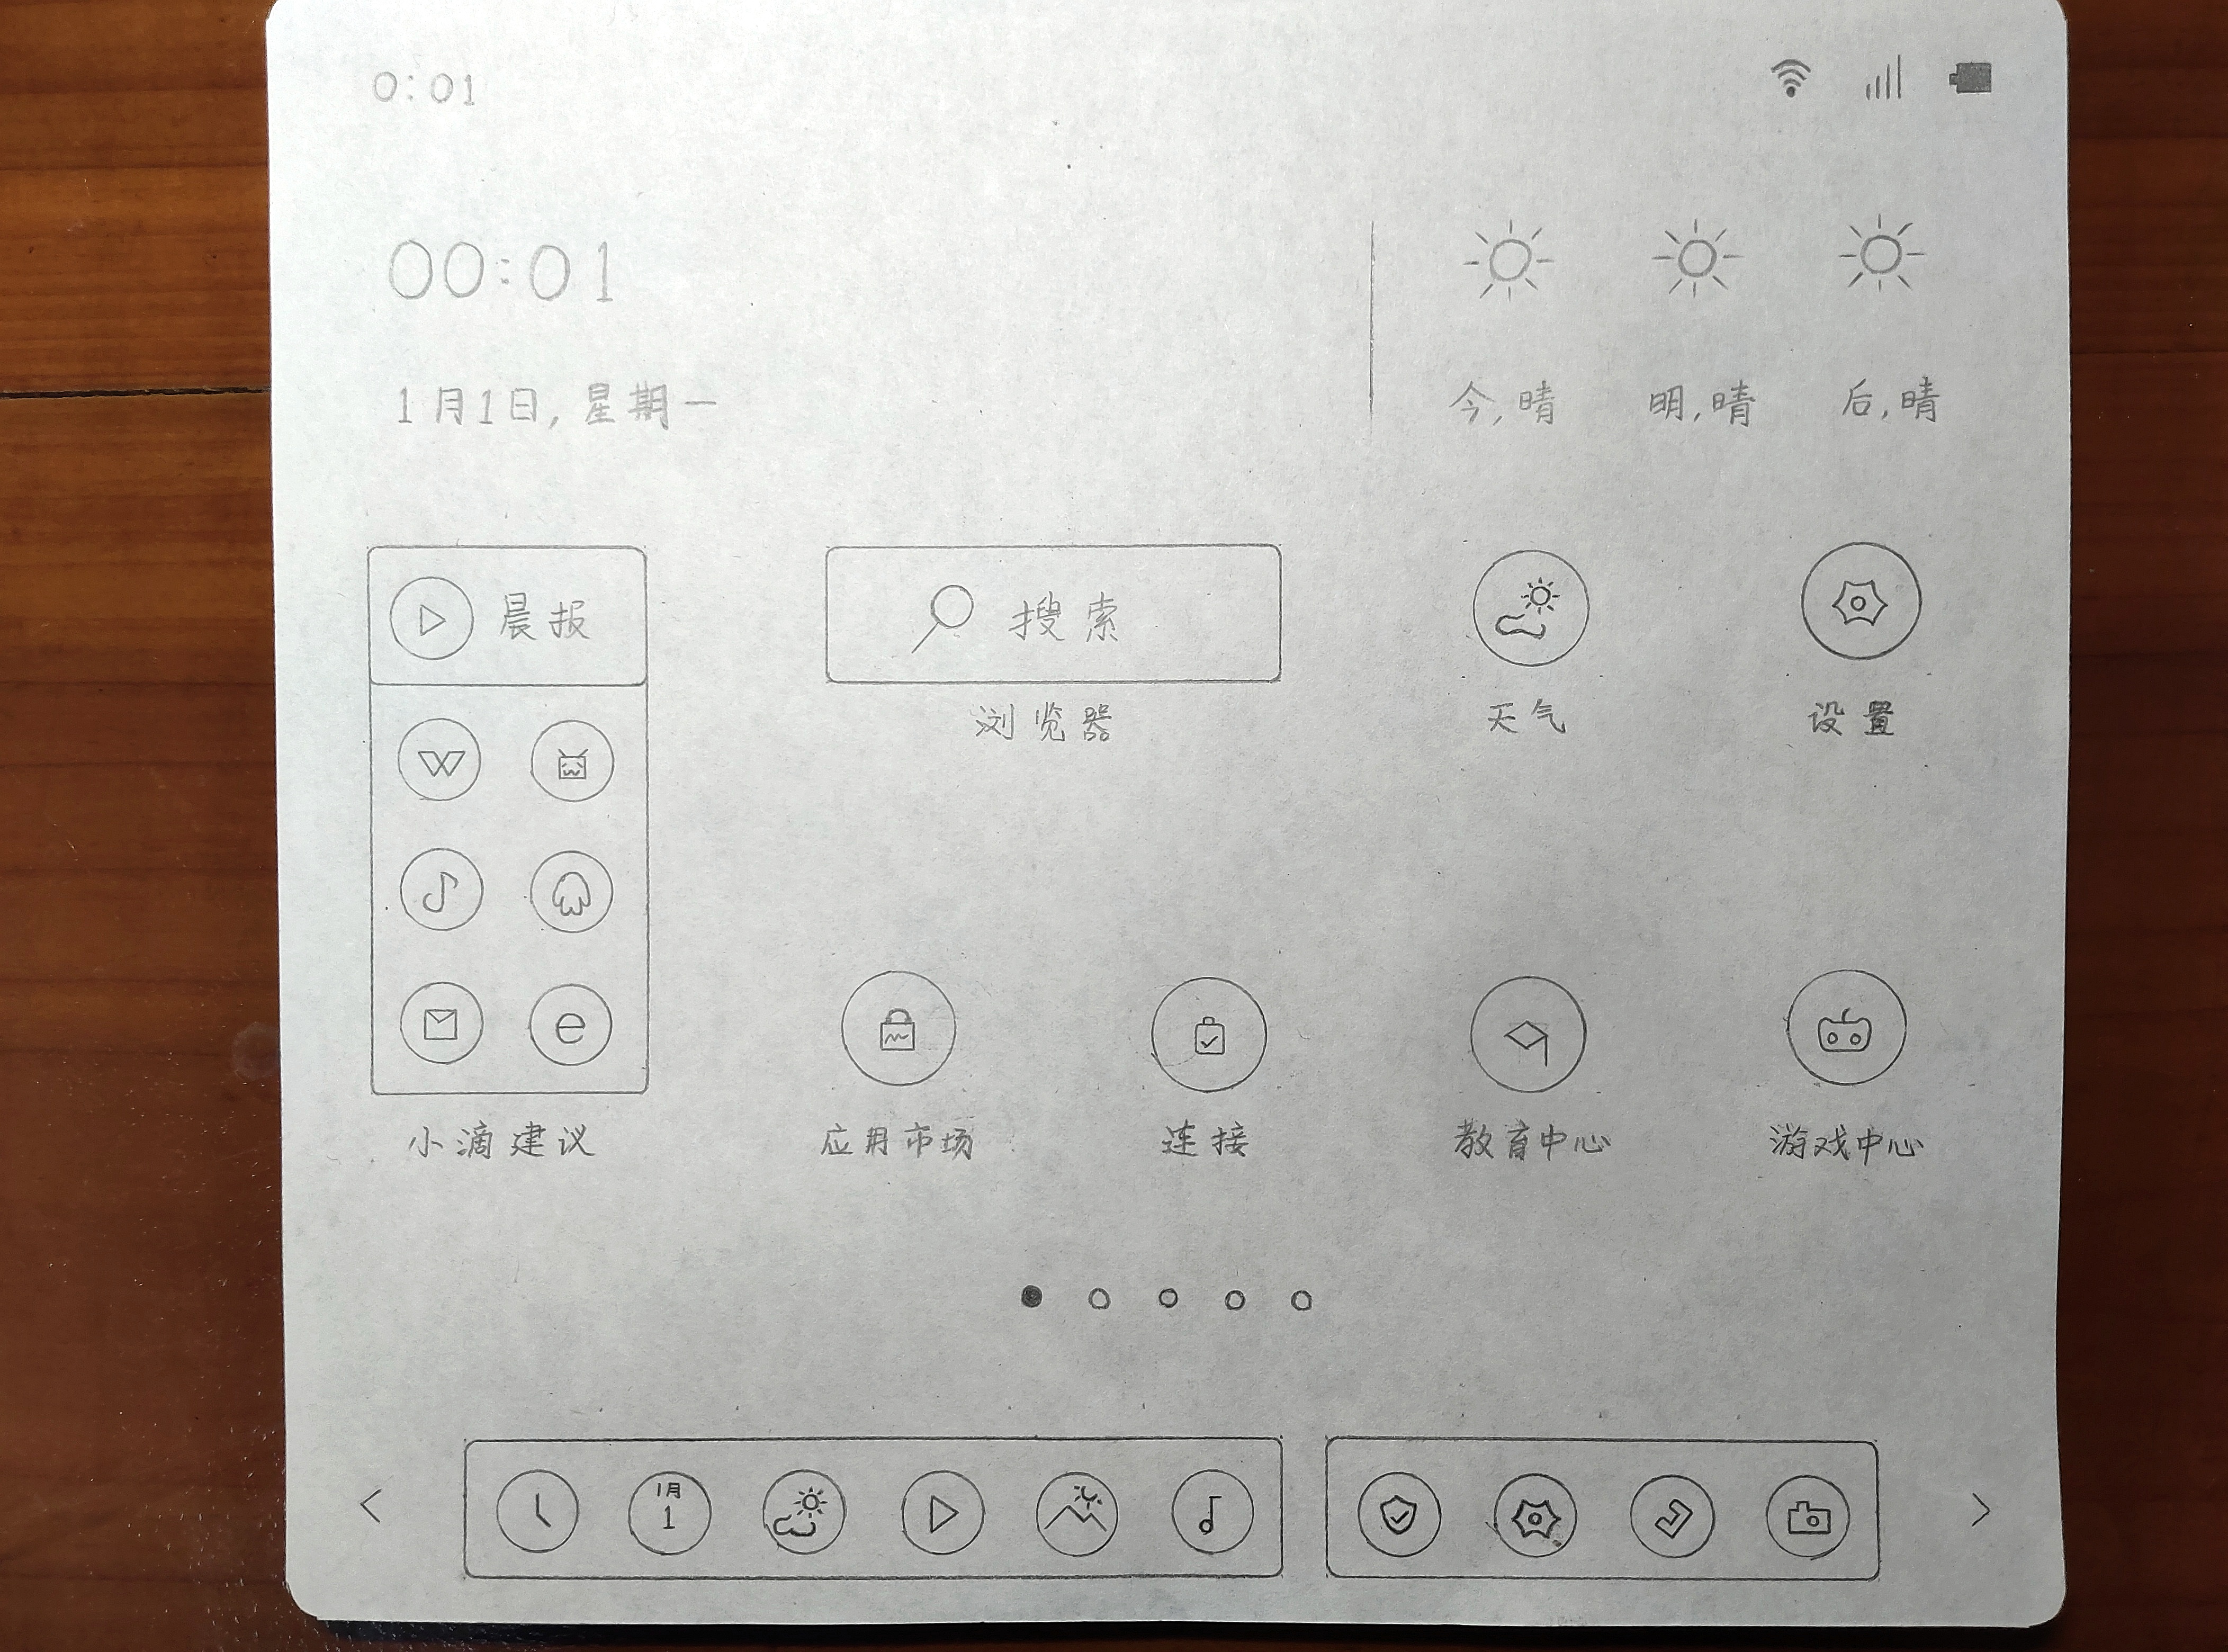 0:01
00:01
1月1日,星期一
今,晴 明,晴 后,晴
晨报
搜索
浏览器
天气
设置
W
e
小滴建议
应用市场
连接
教育中心
游戏中心
1月
1